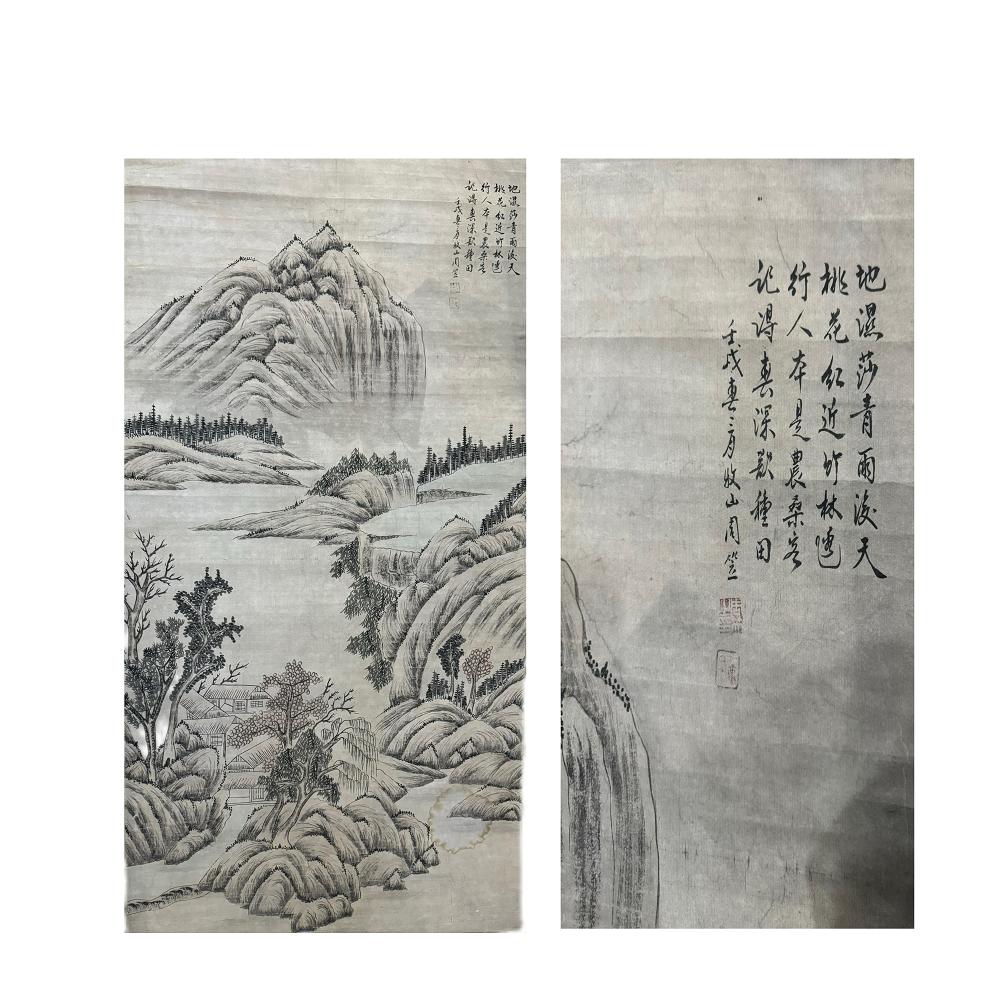 地濕莎青雨後天
桃花紅近竹林邊
行人本是農桑客
記得春深欲種田
壬戌春三月牧山周笠
地濕莎青雨後天
桃花紅近竹林邊
行人本是農桑客
記得春深欲種田
壬戌春三月牧山周笠